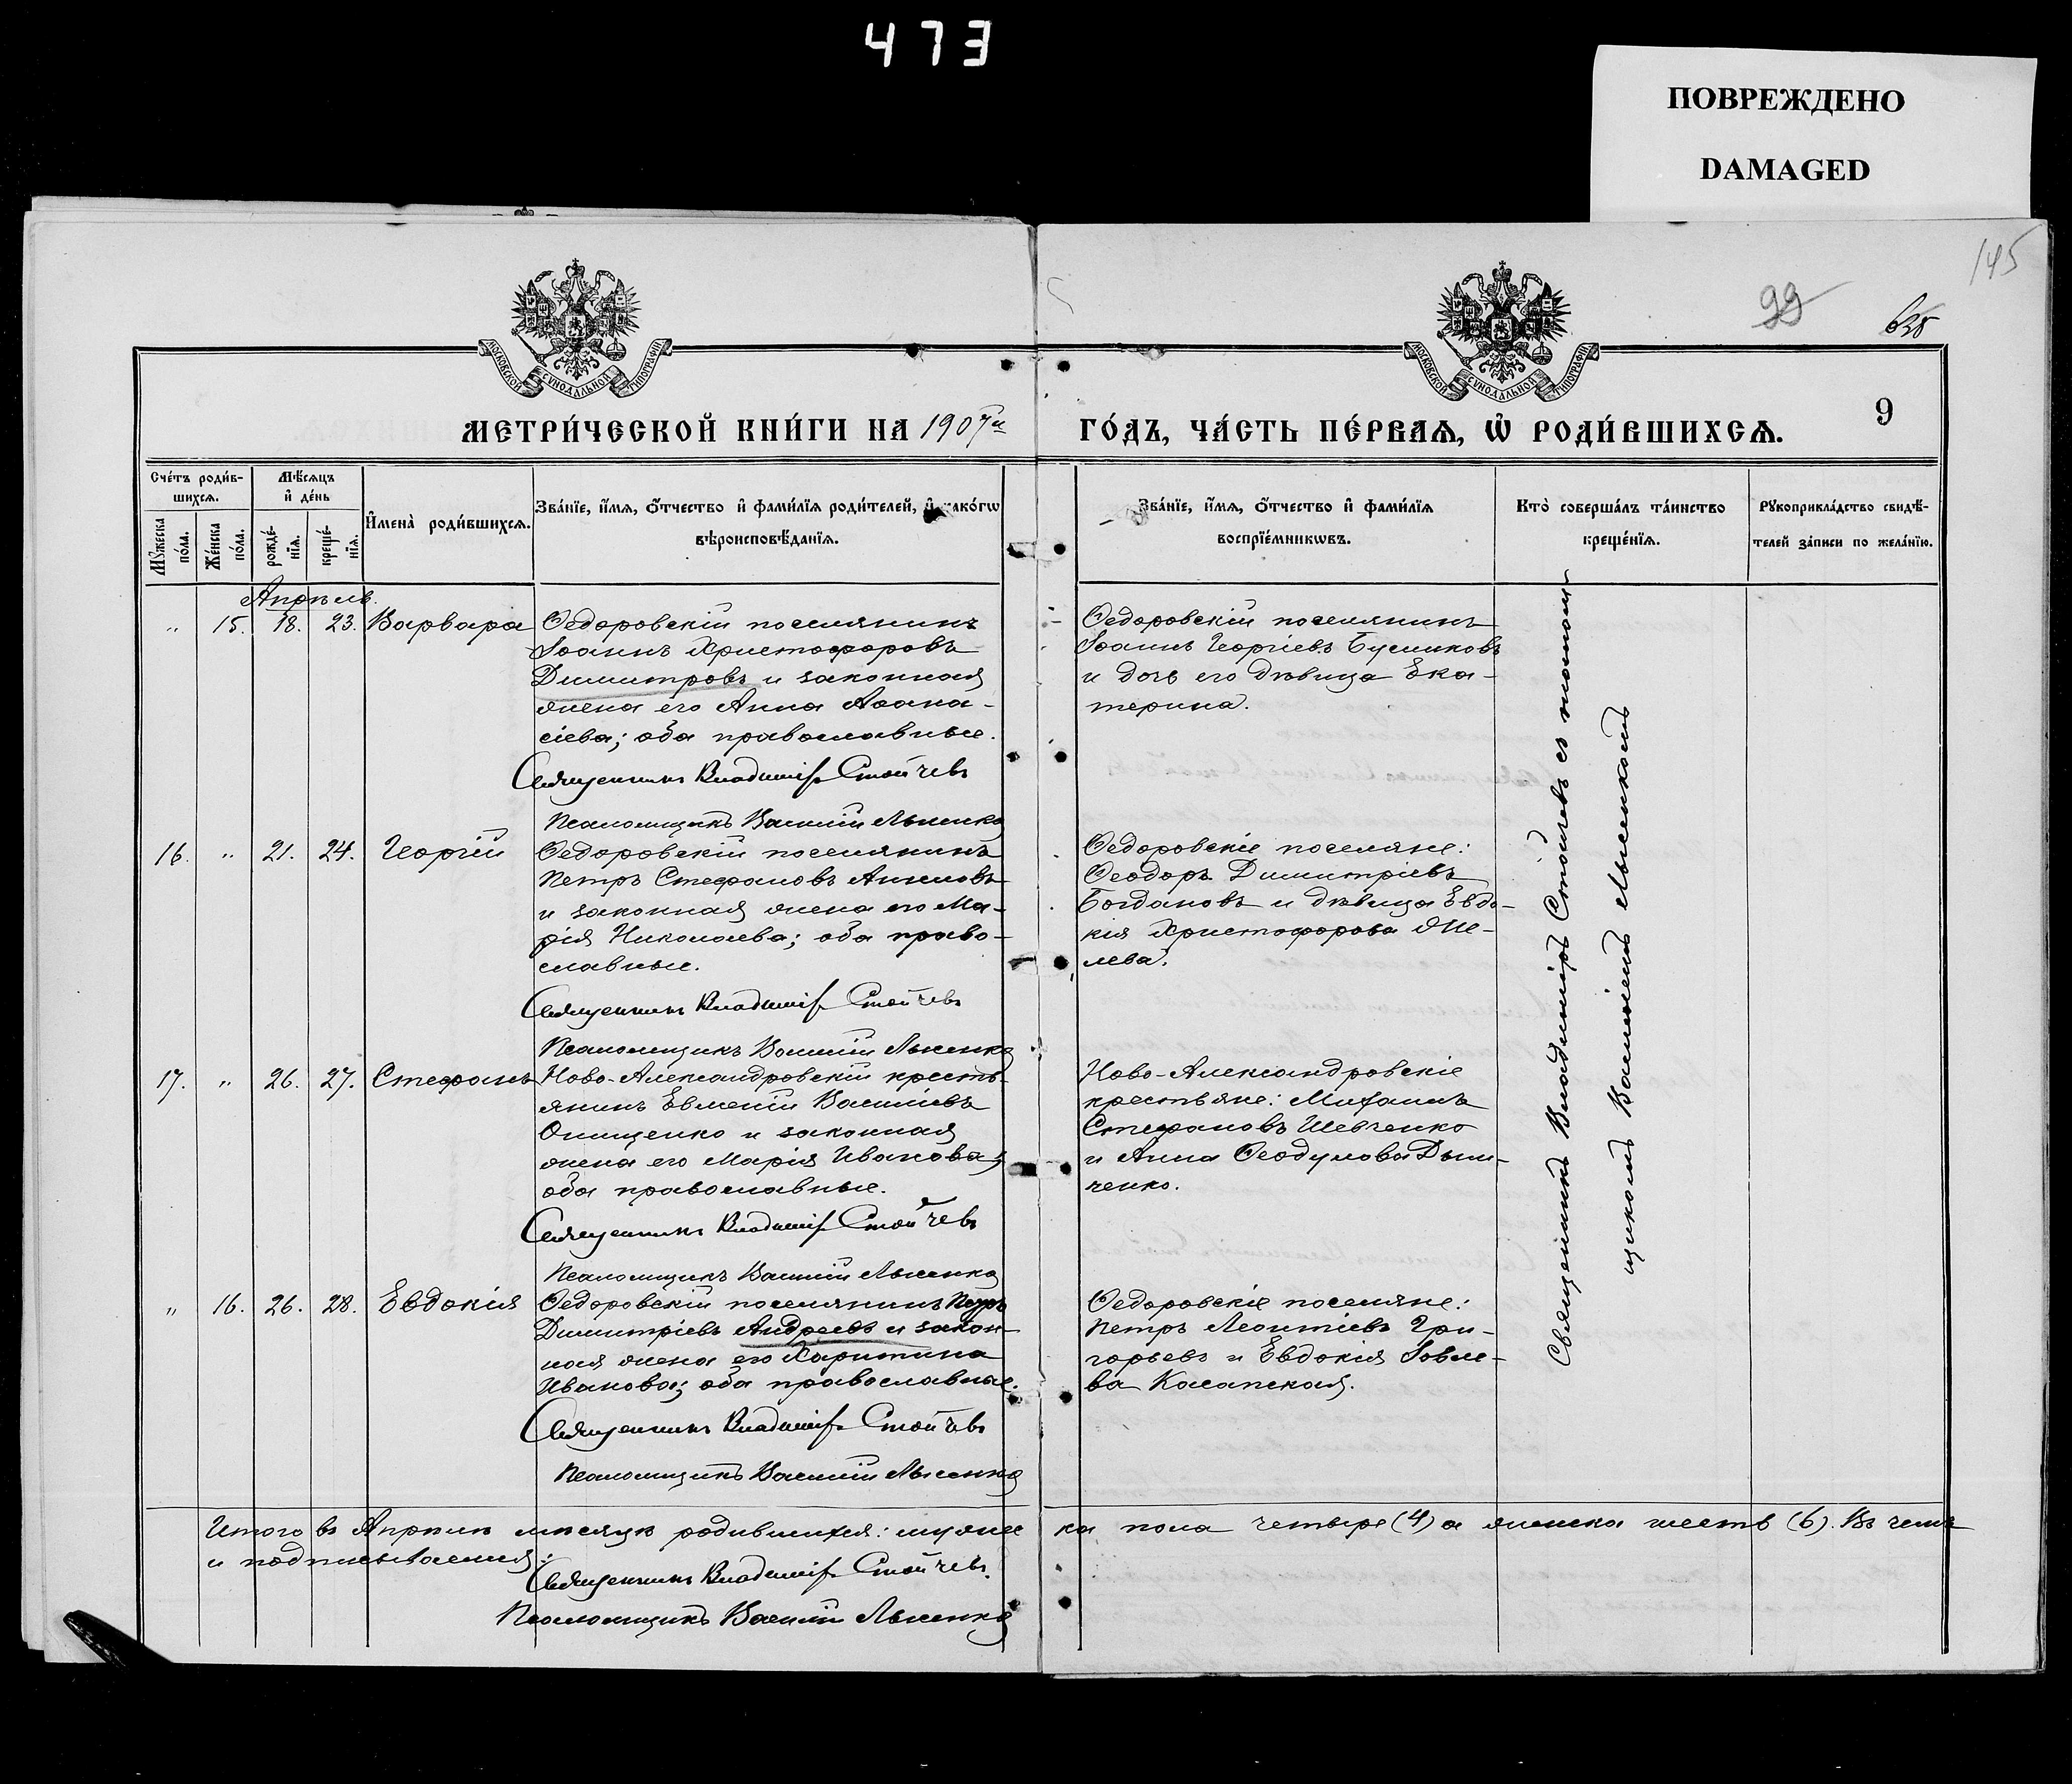 473
ПОВРЕЖДЕНО
DAMAGED
145
99
МОСКОВСКОЙ СѴНОДАЛЬНОЙ ТИПОГРАФІИ
МОСКОВСКОЙ СѴНОДАЛЬНОЙ ТИПОГРАФІИ
МЕТРИ́ЧЕСКОЙ КНИ́ГИ НА 1907й
ГО́ДЪ, ЧА́СТЬ ПЕ́РВАѦ, Ѡ҆ РОДИ́ВШИХСѦ.
9
Сче́тъ роди́в-
шихсѧ.
Мꙋ́жеска по́ла.
Же́нска по́ла.
Мѣ́сѧцъ и҆ де́нь
рожде́-
нїѧ.
креще́-
нїѧ.
И҆мена̀ роди́вшихсѧ.
Зва́нїе, и҆́мѧ, ѻ҆́тчество и҆ фами́лїѧ роди́телей, и҆ како́гѡ
вѣроисповѣ́данїѧ.
Зва́нїе, и҆́мѧ, ѻ҆́тчество и҆ фами́лїѧ
воспрїе́мникѡвъ.
Кто̀ соверша́лъ та́инство
креще́нїѧ.
Рꙋкоприкла́дство свидѣ́-
телей за́писи по жела́нїю.
Апрѣль.
" 15. 18. 23. Варвара
Ѳедоровскій поселянинъ
Іоаннъ Христофоровъ
Димитровъ и законная
жена его Анна Аѳана-
сіева; оба православные.
Священникъ Владимір Стойчевъ
Псаломщикъ Василій Лысенко
Ѳедоровскій поселянинъ
Іоаннъ Георгіевъ Бусликовъ
и дочь его дѣвица Ека-
терина.
16. " 21. 24. Георгій
Ѳедоровскій поселянинъ
Петръ Стефановъ Ангеловъ
и законная жена его Ма-
рія Николаева; оба право-
славные.
Священникъ Владимір Стойчевъ
Псаломщикъ Василій Лысенко
Ѳедоровскіе поселяне:
Ѳеодоръ Димитріевъ
Богдановъ и дѣвица Евдо-
кія Христофорова Же-
лева.
17. " 26. 27. Стефанъ
Ново-Александровскій кресть-
янинъ Евменій Василіевъ
Онищенко и законная
жена его Марія Иванова;
оба православные.
Священникъ Владимір Стойчевъ
Псаломщикъ Василій Лысенко
Ново-Александровскіе
крестьяне: Михаилъ
Стефановъ Шевченко
и Анна Ѳеодулова Дым-
ченко.
" 16. 26. 28. Евдокія
Ѳедоровскій поселянинъ Петръ
Димитріевъ Андреевъ и закон-
ная жена его Харитина
Иванова; оба православные.
Священникъ Владимір Стойчевъ
Псаломщикъ Василій Лысенко
Ѳедоровскіе поселяне:
Петръ Леонтіевъ Гри-
горьевъ и Евдокія Іовле-
ва Касапская.
Священникъ Владиміръ Стойчевъ съ псалом-
щикомъ Василіемъ Лысенкомъ
Итого въ Апрѣлѣ мѣсяцѣ родившихся: мужес ка пола четыре (4) а женска шесть (6). Въ чемъ
и подписываемся:
Священникъ Владимір Стойчевъ.
Псаломщикъ Василій Лысенко